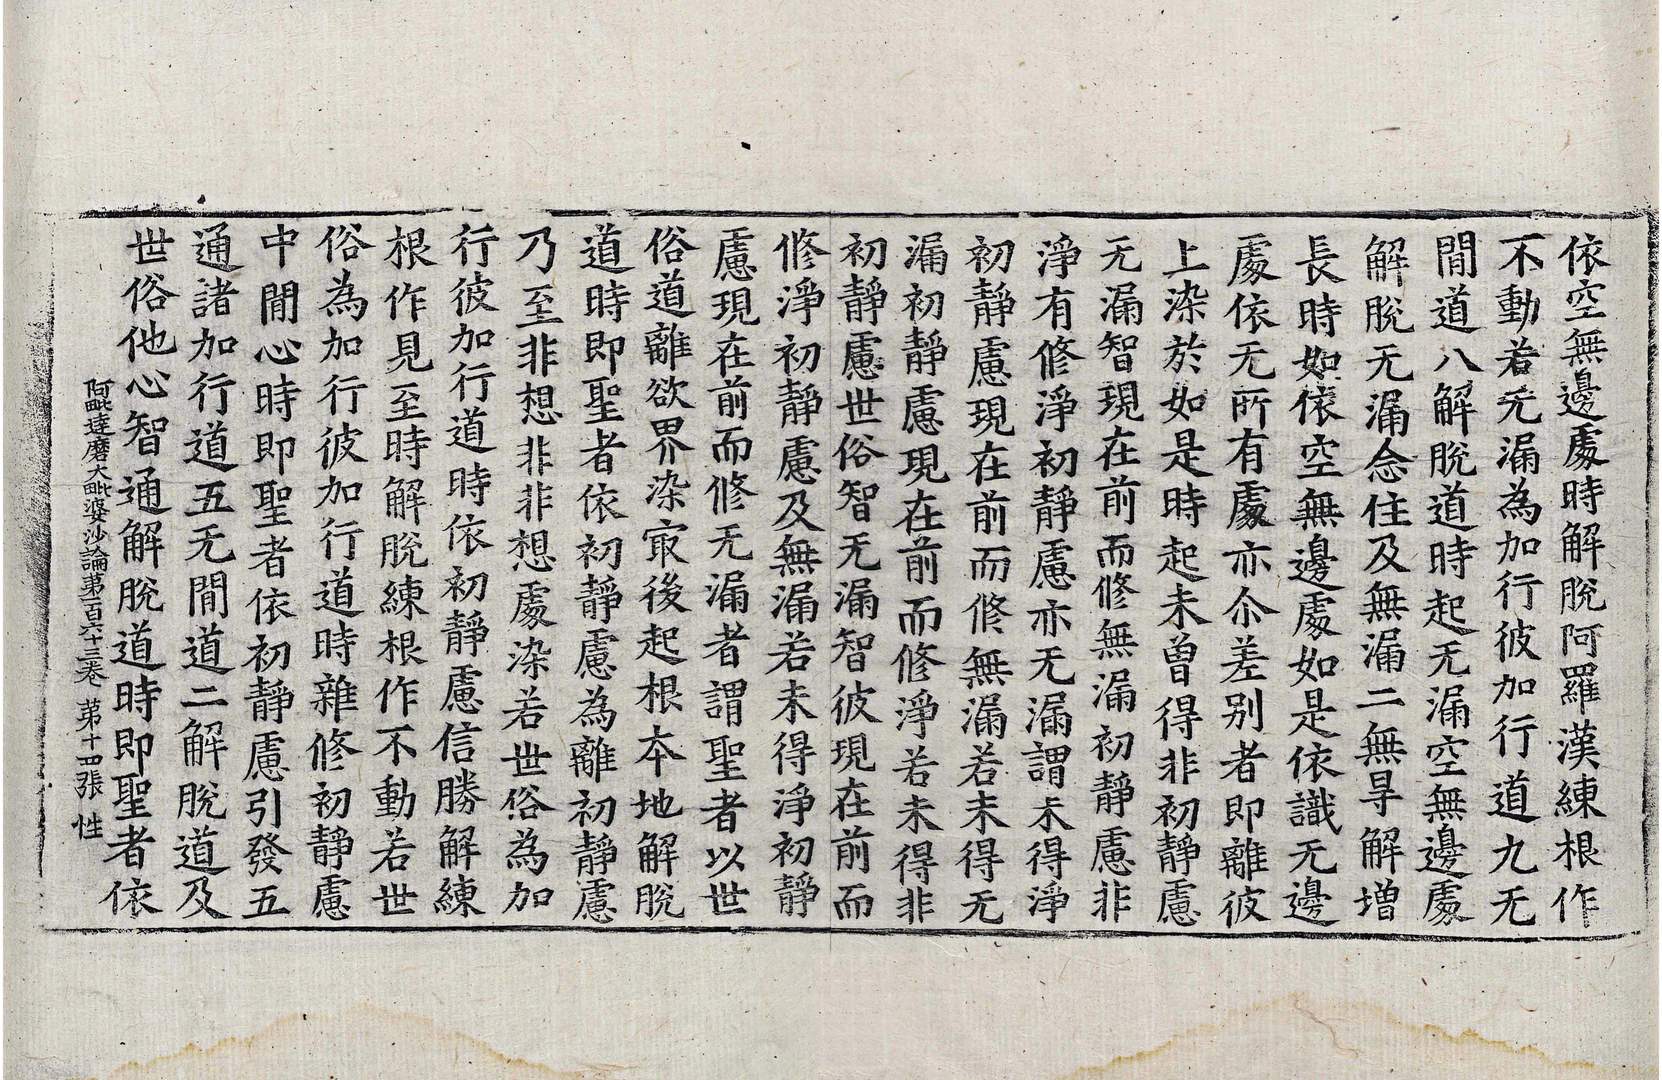 依空無邊處時解脫阿羅漢練根作
不動若无漏為加行彼加行道九无
間道八解脫道時起无漏空無邊處
解脫无漏念住及無漏二無㝵解增
長時如依空無邊處如是依識无邊
處依无所有處亦尒差別者即離彼
上染於如是時起未曾得非初靜慮
无漏智現在前而修無漏初靜慮非
淨有修淨初靜慮亦无漏謂未得淨
初靜慮現在前而修無漏若未得无
漏初靜慮現在前而修淨若未得非
初靜慮世俗智无漏智彼現在前而
修淨初靜慮及無漏若未得淨初靜
慮現在前而修无漏者謂聖者以世
俗道離欲界染㝡後起根本地解脫
道時即聖者依初靜慮為離初靜慮
乃至非想非非想處染若世俗為加
行彼加行道時依初靜慮信勝解練
根作見至時解脫練根作不動若世
俗為加行彼加行道時雜修初靜慮
中間心時即聖者依初靜慮引發五
通諸加行道五无間道二解脫道及
世俗他心智通解脫道時即聖者依
阿毗達磨大毗婆沙論第一百六十三卷 第十四張 性